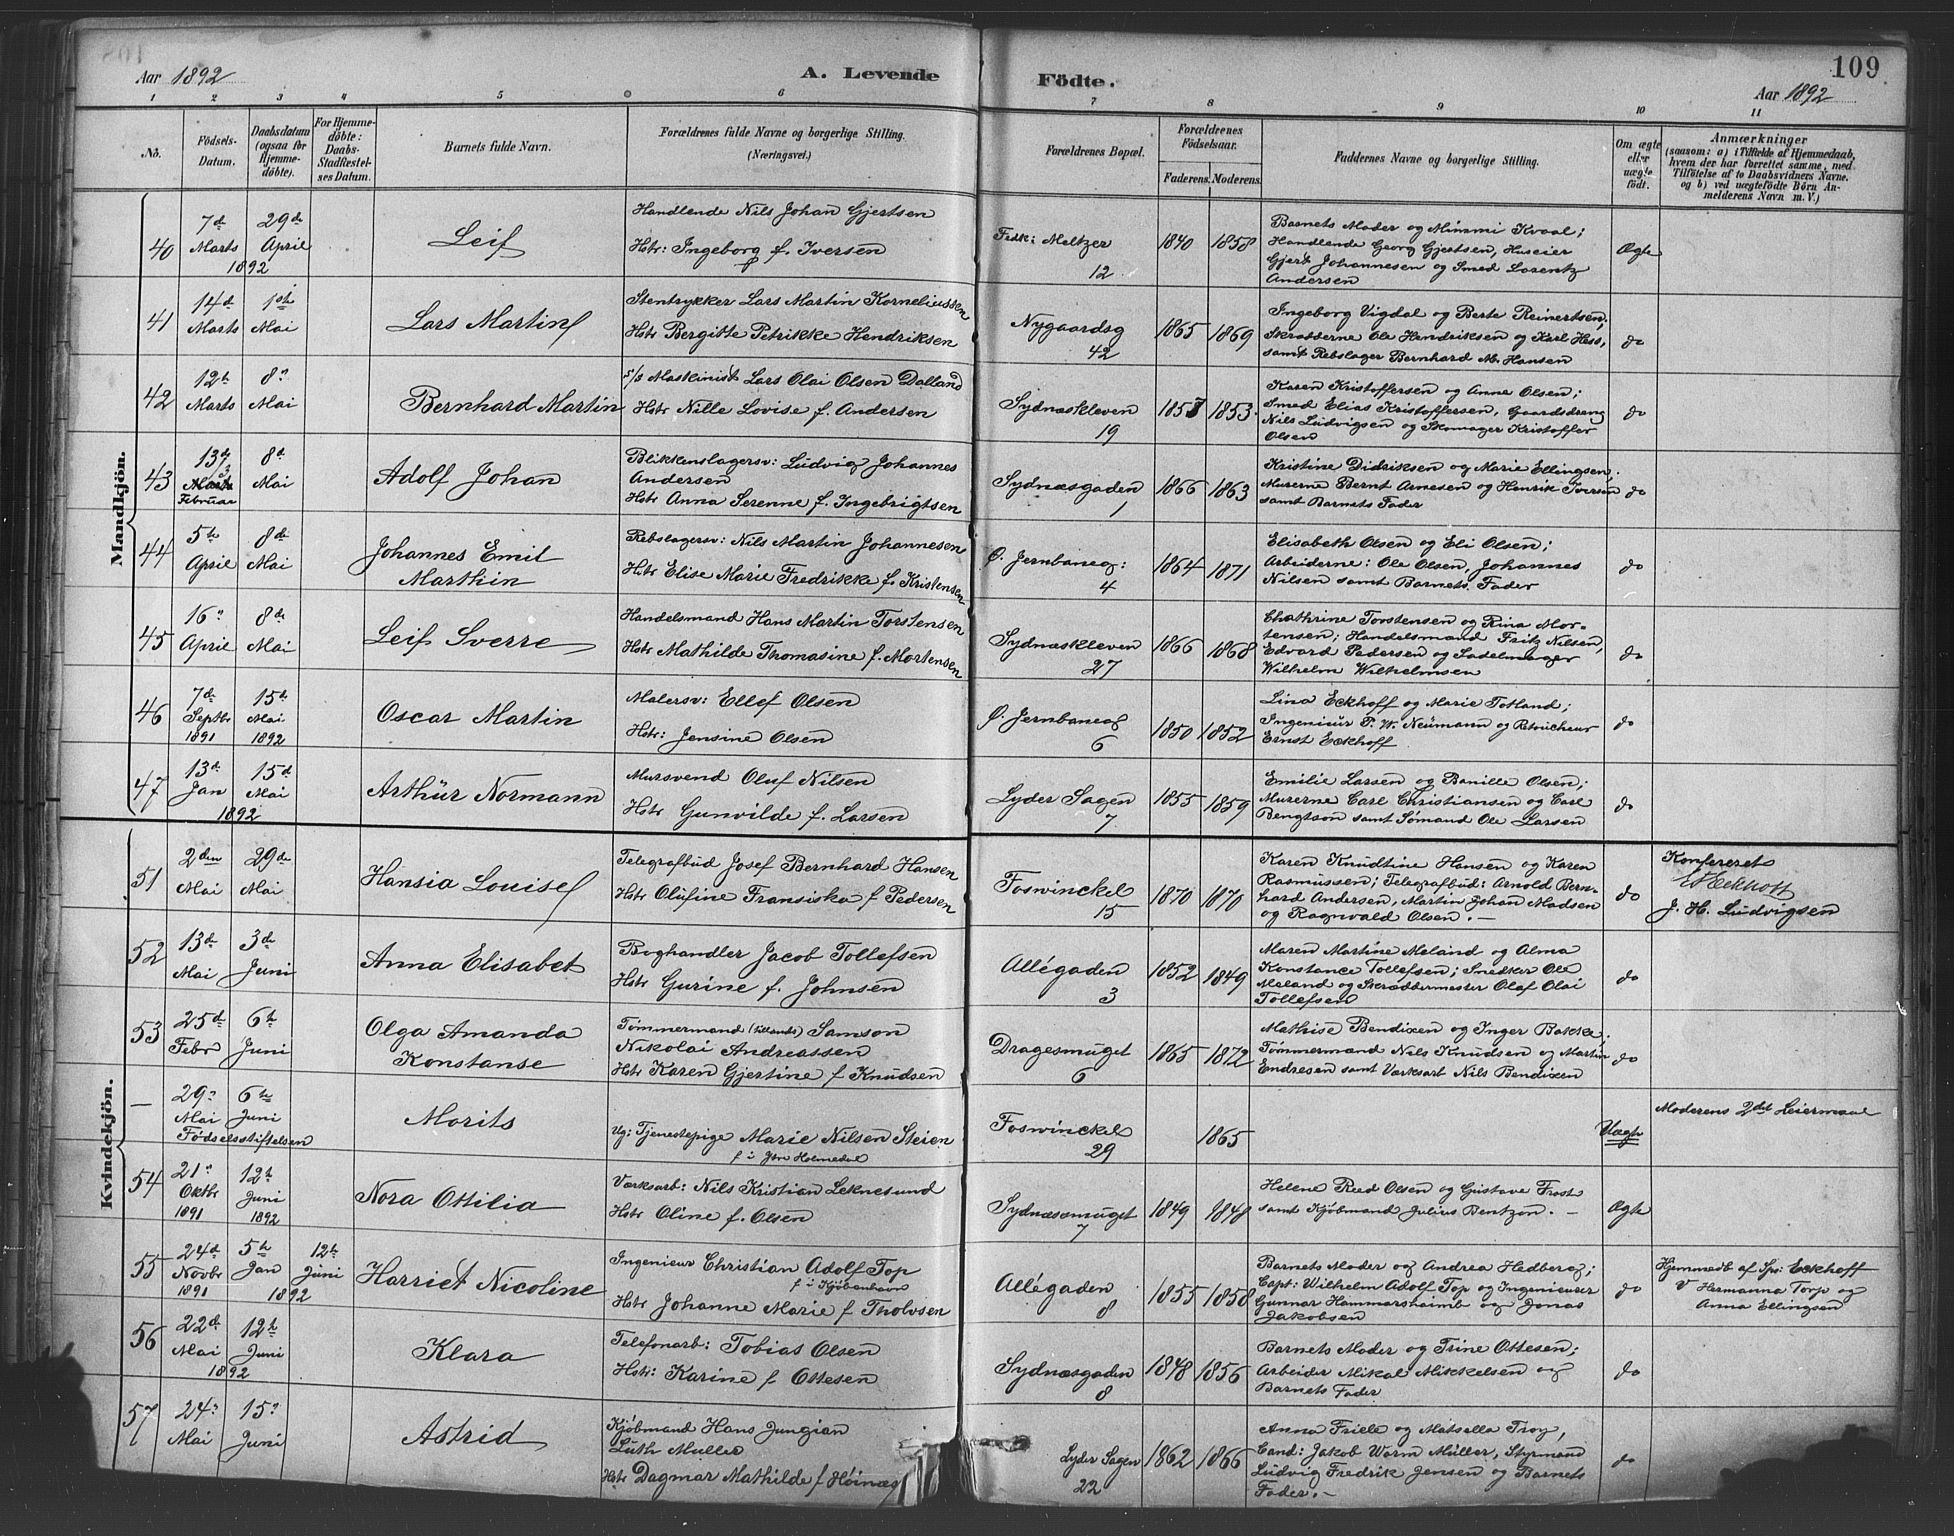 109
Aar 1892
A. Levende
Födte.
Aar 1892
1 2 3 4 5 6 7 8 9 10 11
No.
Födsels-
Datum.
Daabsdatum
(ogsaa for
Hjemme-
döbte).
For Hjemme-
döbte:
Daabs-
Stadfæstel-
ses Datum.
Barnets fulde Navn.
Forældrenes fulde Navne og borgerlige Stilling.
(Næringsvei.)
Forældrenes Bopæl.
Forældrenes
Födselsaar.
Faderens. Moderens.
Faddernes Navne og borgerlige Stilling.
Om ægte
eller
uægte
födt.
Anmærkninger
(saasom: a) i Tilfælde af Hjemmedaab,
hvem der har forrettet samme, med
Tilföielse af to Daabsvidners Navne,
og b) ved uægtefödte Börn An-
melderens Navn m. V.)
Mandkjön.
40
7de
Marts
29de
April
1892
Leif
Handlende Nils Johan Gjertsen
Hstr: Ingeborg f. Iversen
Fedk: Meltzer
12
1840 1858
Barnets Moder og Mimmi Kvaal;
Handlende Georg Gjertsen, Huseier
Gjert Johannesen og Smed Lorentz
Andersen
Ægte
41
14de
Marts
1ste
Mai
Lars Martin
Stentrykker Lars Martin Korneliussen
Hstr Bergitte Petrikke Hendriksen
Nygaardsg
42
1865 1869
Ingeborg Vigdal og Berte Reinertsen;
Skrædderne Ole Hendriksen og Karl Hess,
samt Rebslager Bernhard M. Hansen
do
42
12te
Marts
8"
Mai
Bernhard Martin
s/s Maskinist Lars Olai Olsen Dalland
Hstr Nille Lovise f. Andersen
Sydnæskleven
19
1857 1853
Karen Kristoffersen og Anne Olsen;
Smed Elias Kristoffersen, Gaardsdreng
Nils Ludvigsen og Skomager Kristoffer
Olsen
do
43
13de
Februar
8de
Mai
Adolf Johan
Blikkenslagersv: Ludvig Johannes
Andersen
Hstr Anna Serenne f. Ingebrigtsen
Sydnæsgaden
1
1866 1863
Kristine Didriksen og Marie Ellingsen;
Murerne Bernt Arnesen og Henrik Iversen
samt Barnets Fader
do
44
5te
April
8de
Mai
Johannes Emil
Marthin
Rebslagersv: Nils Martin Johannesen
Hstr Elise Marie Fredrikke f. Kristensen
Ø. Jernbaneg:
4
1864 1871
Elisabeth Olsen og Eli Olsen;
Arbeiderne: Ole Olsen, Johannes
Nilsen samt Barnets Fader
do
45
16"
April
8de
Mai
Leif Sverre
Handelsmand Hans Martin Torstensen
Hstr Mathilde Thomasine f. Mortensen
Sydnæskleven
27
1866 1868
Chathrine Torstensen og Rina Mor-
tensen; Handelsmand Fritz Nilsen,
Edvard Pedersen og Sadelmager
Wilhelm Wilhelmsen
do
46
7de
Septbr
1891
15de
Mai
1892
Oscar Martin
Malersv: Ellef Olsen
Hstr: Jensine Olsen
Ø. Jernbaneg
6
1850 1852
Lina Eckhoff og Marie Totland;
Ingenieur P. W. Neumann og Retoucheur
Ernst Eckhoff
do
47
13de
Jan
15de
Mai
1892
Arthur Normann
Mursvend Oluf Nilsen
Hstr Gunvilde f. Larsen
Lyder Sagen
7
1855 1859
Emilie Larsen og Banille Olsen;
Murerne Carl Christiansen og Carl
Bengtson samt Sømand Ole Larsen
do
Kvindekjön.
51
2den
Mai
29de
Mai
Hansia Louise
Telegrafbud Josef Bernhard Hansen
Hstr Olufine Fransiska f Pedersen
Foswinckel
15
1870 1870
Karen Knudtine Hansen og Karen
Rasmussen; Telegrafbud: Arnold Bern-
hard Andersen, Martin Johan Madsen
og Ragnvald Olsen. -
do
Konfereret
Eckhoff
J. H. Ludvigsen
52
13de
Mai
3de
Juni
Anna Elisabet
Boghandler Jacob Tollefsen
Hstr Gurine f. Johnsen
Allégaden
3
1852 1849
Maren Martine Meland og Alma
Konstance Tollefsen; Smedker Ole
Meland og Skræddermester Olaf Olai
Tollefsen
do
53
25de
Febr
6te
Juni
Olga Amanda
Konstanse
Tømmermand (tillands) Samson
Nikolai Andreassen
Hstr Karen Gjertine f Knudsen
Dragesmuget
6
1865 1872
Mathise Bendixen og Inger Bakke;
Tømmermand Nils Knudsen og Martin
Endresen samt Værksarb Nils Bendixen
do
—
29"
Mai
6te
Juni
Fødselsstiftelsen
Morits
Ug: Tjenestepige Marie Nilsen Steien
f i Ytre Holmedal
Foswinckel
29
1865
Uægte
Moderens 2det Leiermaal
54
21"
Oktbr
1891
12te
Juni
1892
Nora Ottilia
Værksarb: Nils Kristian Leknesund
Hstr Oline f. Olsen
Sydnæssmuget
7
1849 1848
Helene Reed Olsen og Gustave Frost
samt Kjøbmand Julius Bentzon. -
Ægte
55
24de
Novbr
1891
5te
Jan
1892
12te
Juni
Harriet Nicoline
Ingenieur Christian Adolf Top
f i Kjøbenhavn
Hstr Johanne Marie f Tholvsen
Allégaden
8
1855 1858
Barnets Moder og Andrea Hedberg;
Capt: Wilhelm Adolf Top og Ingeniører
Gunnar Hammarshaimb og Jonas
Jakobsen
do
Hjemmedb af Sp: Eckhoff
v Hermanna Torp og
Anna Ellingsen
56
22de
Mai
12te
Juni
1892
Klara
Telefonarb: Tobias Olsen
Hstr: Karine f Ottesen
Sydnæsgaden
8
1848 1856
Barnets Moder og Trine Ottesen;
Arbeider Mikal Mikkelsen og
Barnets Fader
do
57
24"
Mai
15"
Juni
Astrid
Kjøbmand Hans Jungian
Luth Muller
Hstr Dagmar Mathilde f Høinæs
Lyder Sagen
22
1862 1866
Anna Friele og Matsella Troy,
Cand: Jakob Worm Müller, Styrmand
Ludvig Fredrik Jensen og Barnets
Fader. -
do